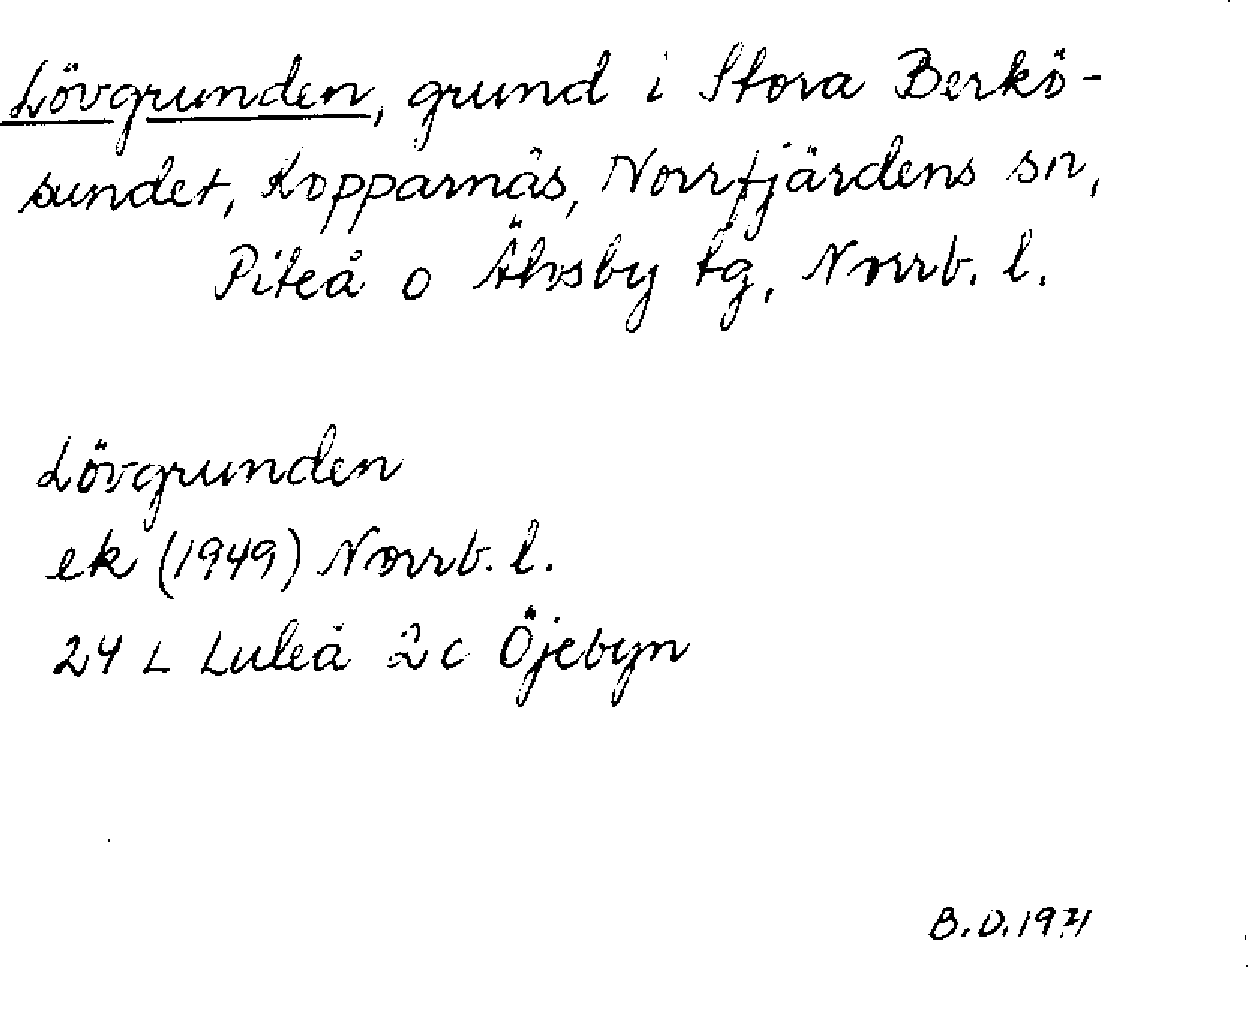 Lövgrunden, grund i Stora Berkö-
sundet, Kopparnäs, Norrfjärdens sn,
Piteå o Älvsby tg, Norrb. l.
Lövgrunden
ek (1949) Norrb. l.
24 L Luleå 2c Öjebyn
B.D. 1971